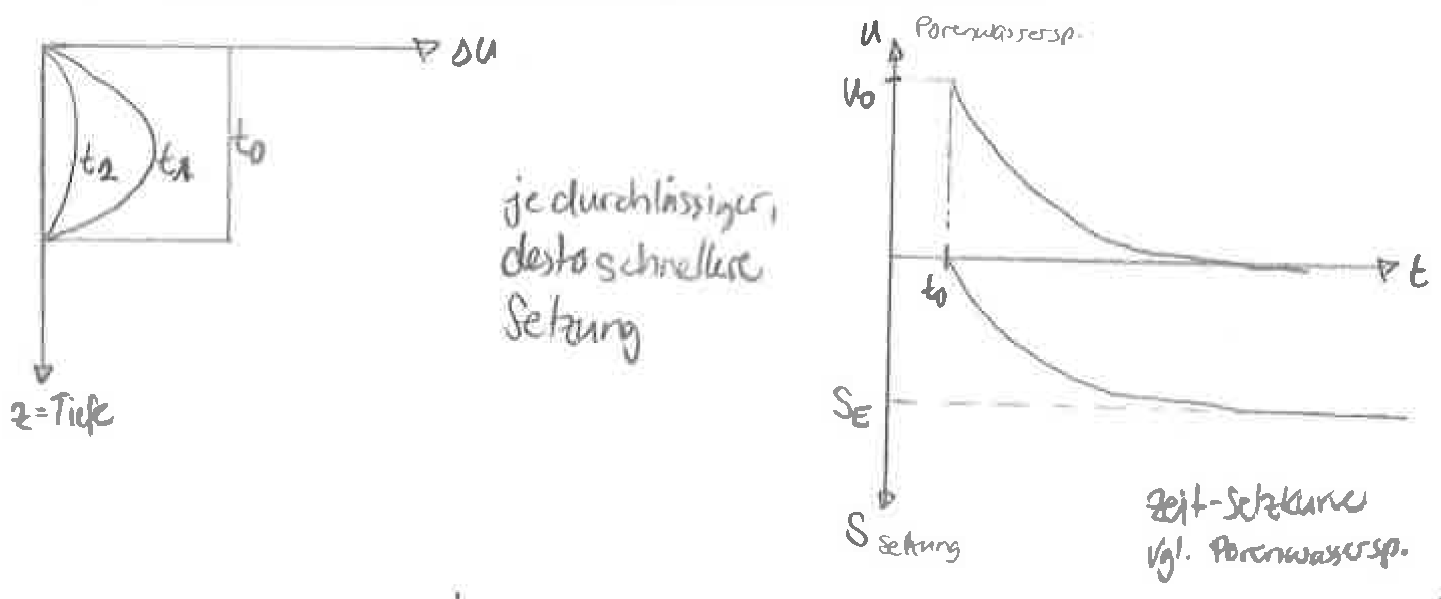 Δu
t2
t1
t0
z=Tiefe
je durchlässiger,
desto schnellere
Setzung
u Porenwassersp.
u0
t0
t
SE
S Setzung
Zeit-Setzkurve
vgl. Porenwassersp.